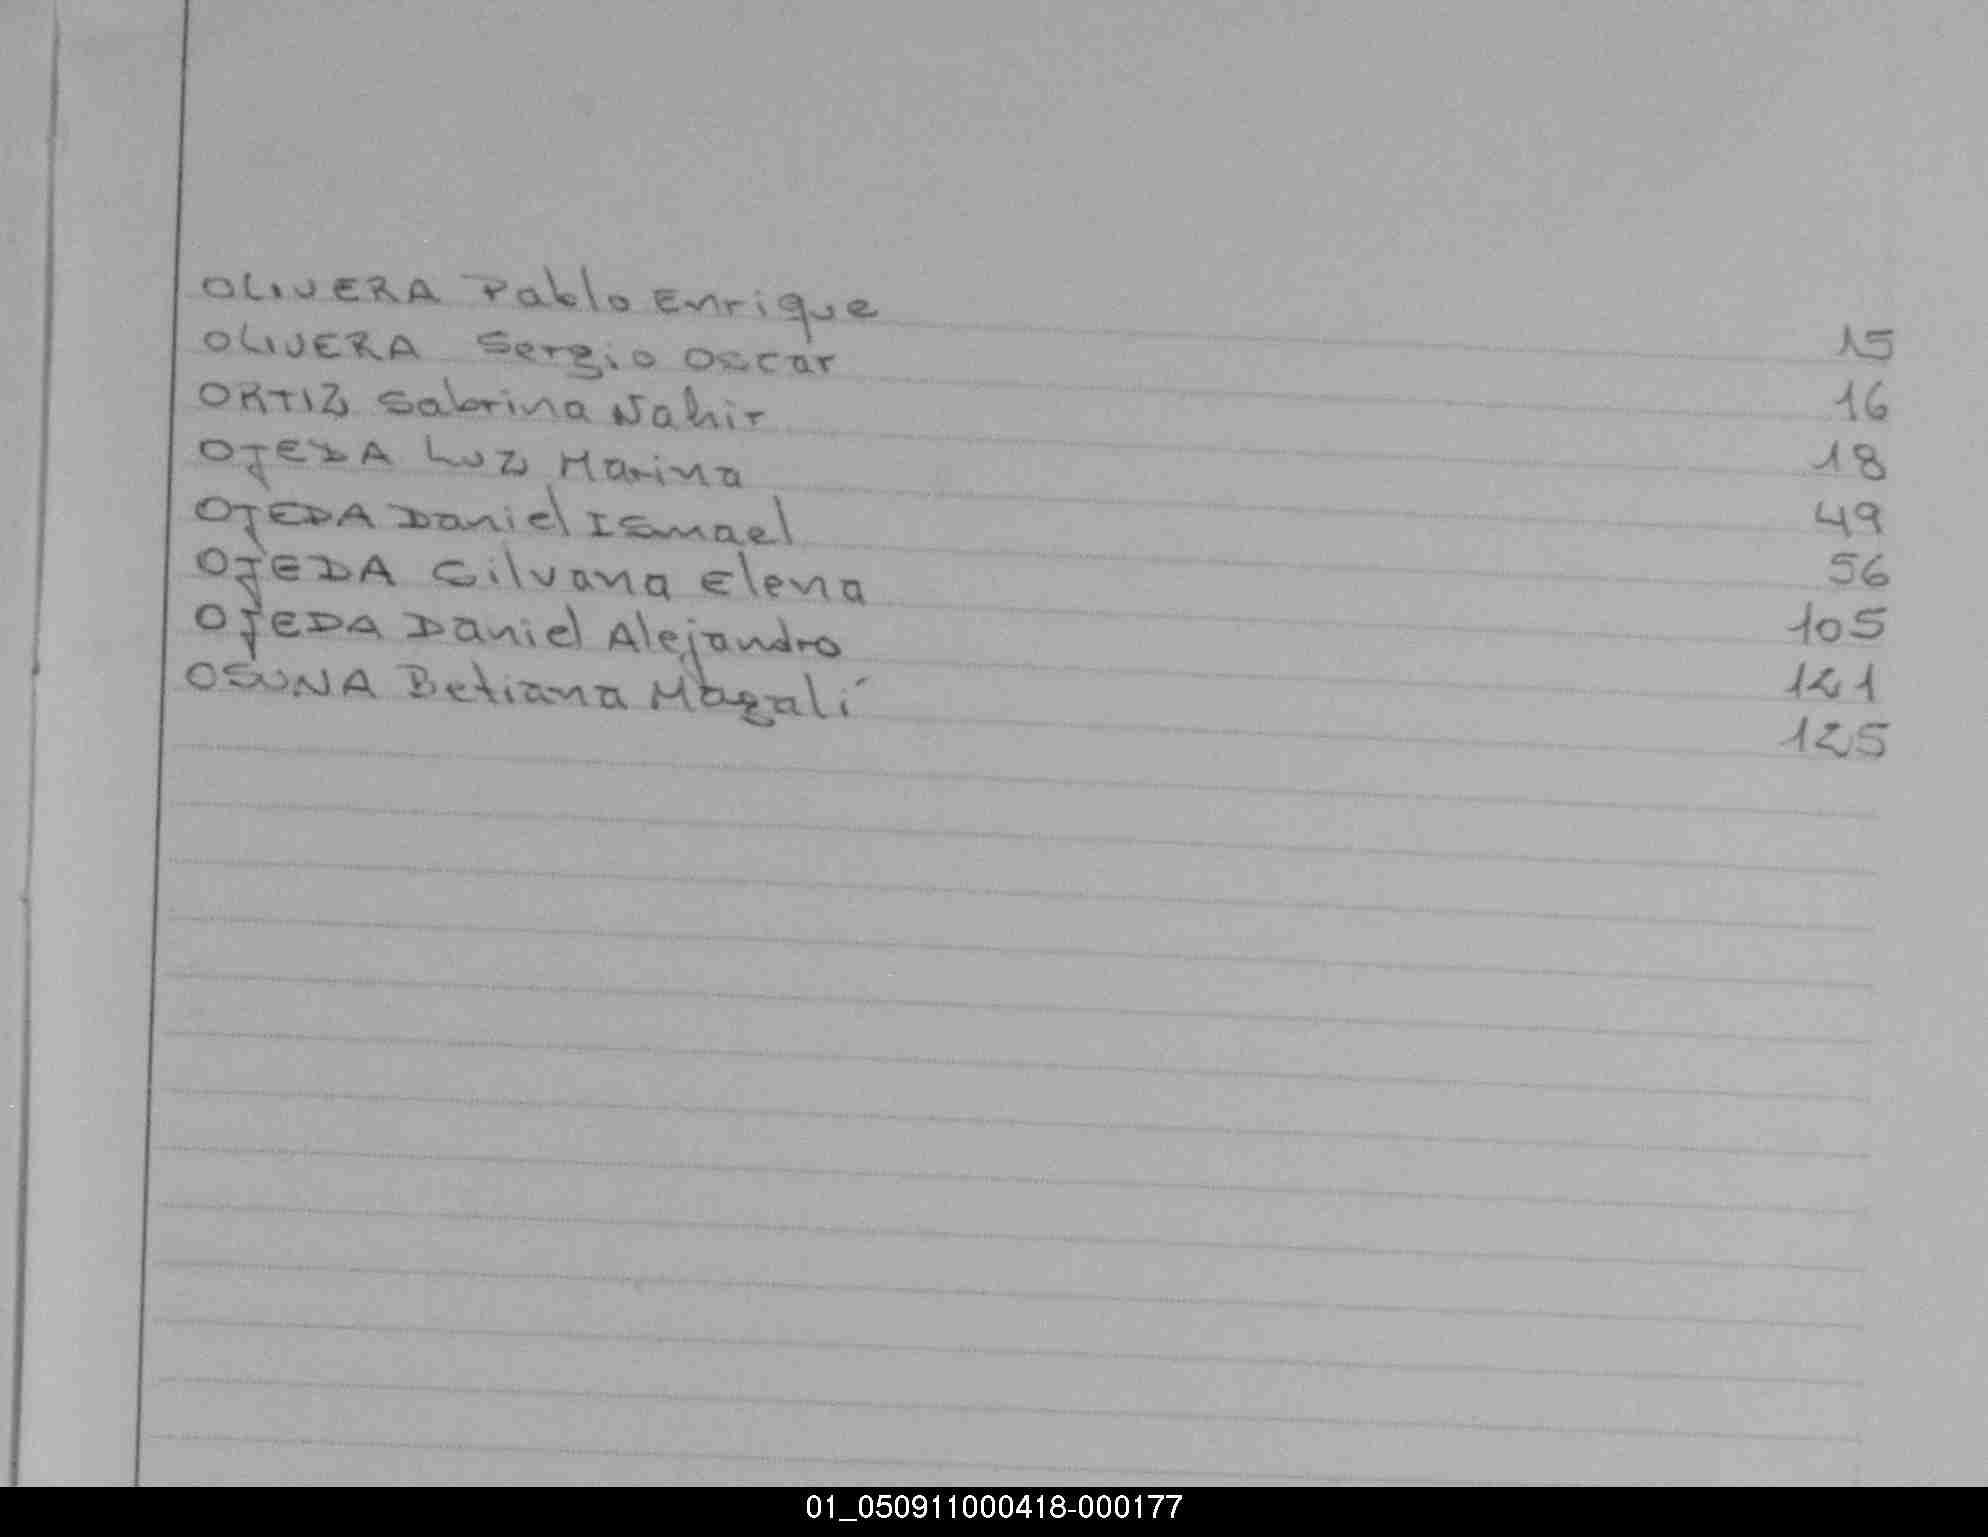 OLIVERA Pablo Enrique 15
OLIVERA Sergio Oscar 16
ORTIZ Sabrina Nahir 18
OJEDA Luz Marina 49
OJEDA Daniel Ismael 56
OJEDA Silvana Elena 105
OJEDA Daniel Alejandro 121
OSUNA Betiana Magalí 125
01_050911000418-000177